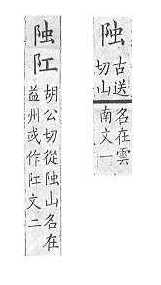 𨹃
古送切山
名在雲南文一
𨹃
𨸖
胡公切從𨹃山名在
益州或作𨸖文二